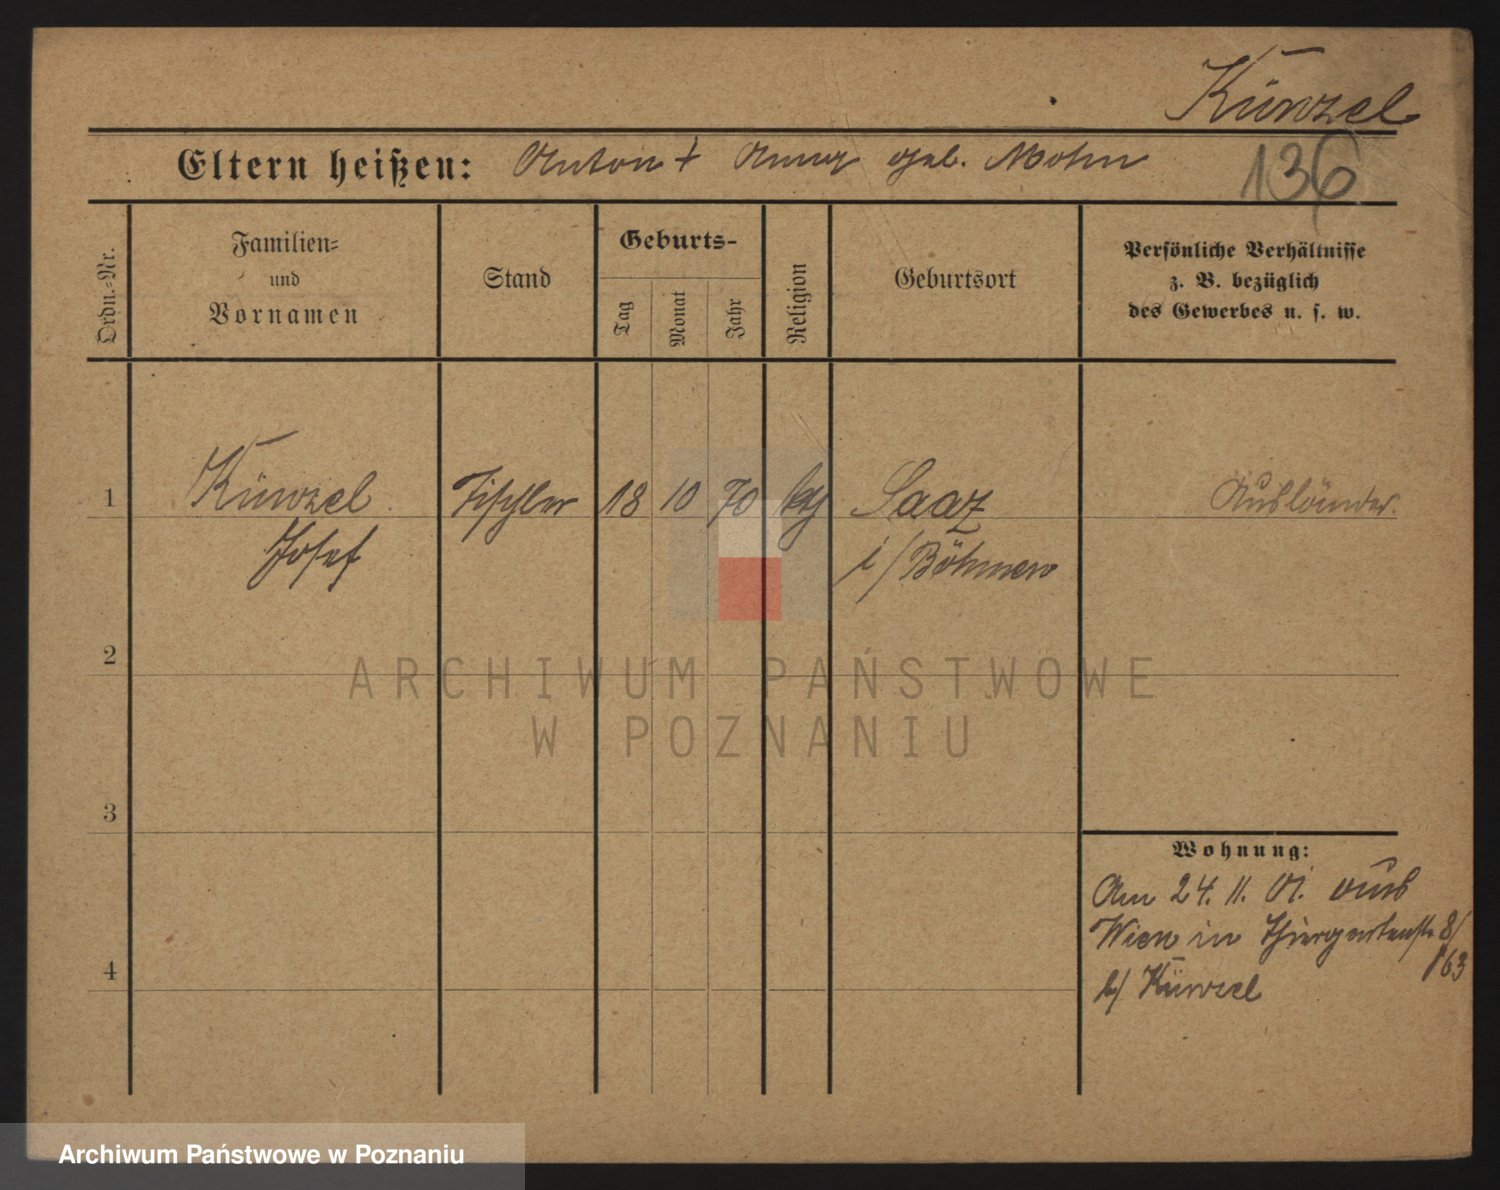 Künzel
Eltern heißen: Anton † Anna geb. Mohn
136
Ordn.=Nr.
Familien=
und
Vornamen
Stand
Geburts-
Tag
Monat
Jahr
Religion
Geburtsort
Persönliche Verhältnisse
z. B. bezüglich
des Gewerbes u. s. w.
1
Künzel
Josef
Tischler
18
10
70
kth
Saaz
i/Böhmen
Ausländer.
2
ARCHIWUM PAŃSTWOWE
W POZNANIU
3
4
Wohnung:
Am 24. 11. 01. aus
Wien in Thiergartenstr. 8/
163
b/ Künzel
Archiwum Państwowe w Poznaniu